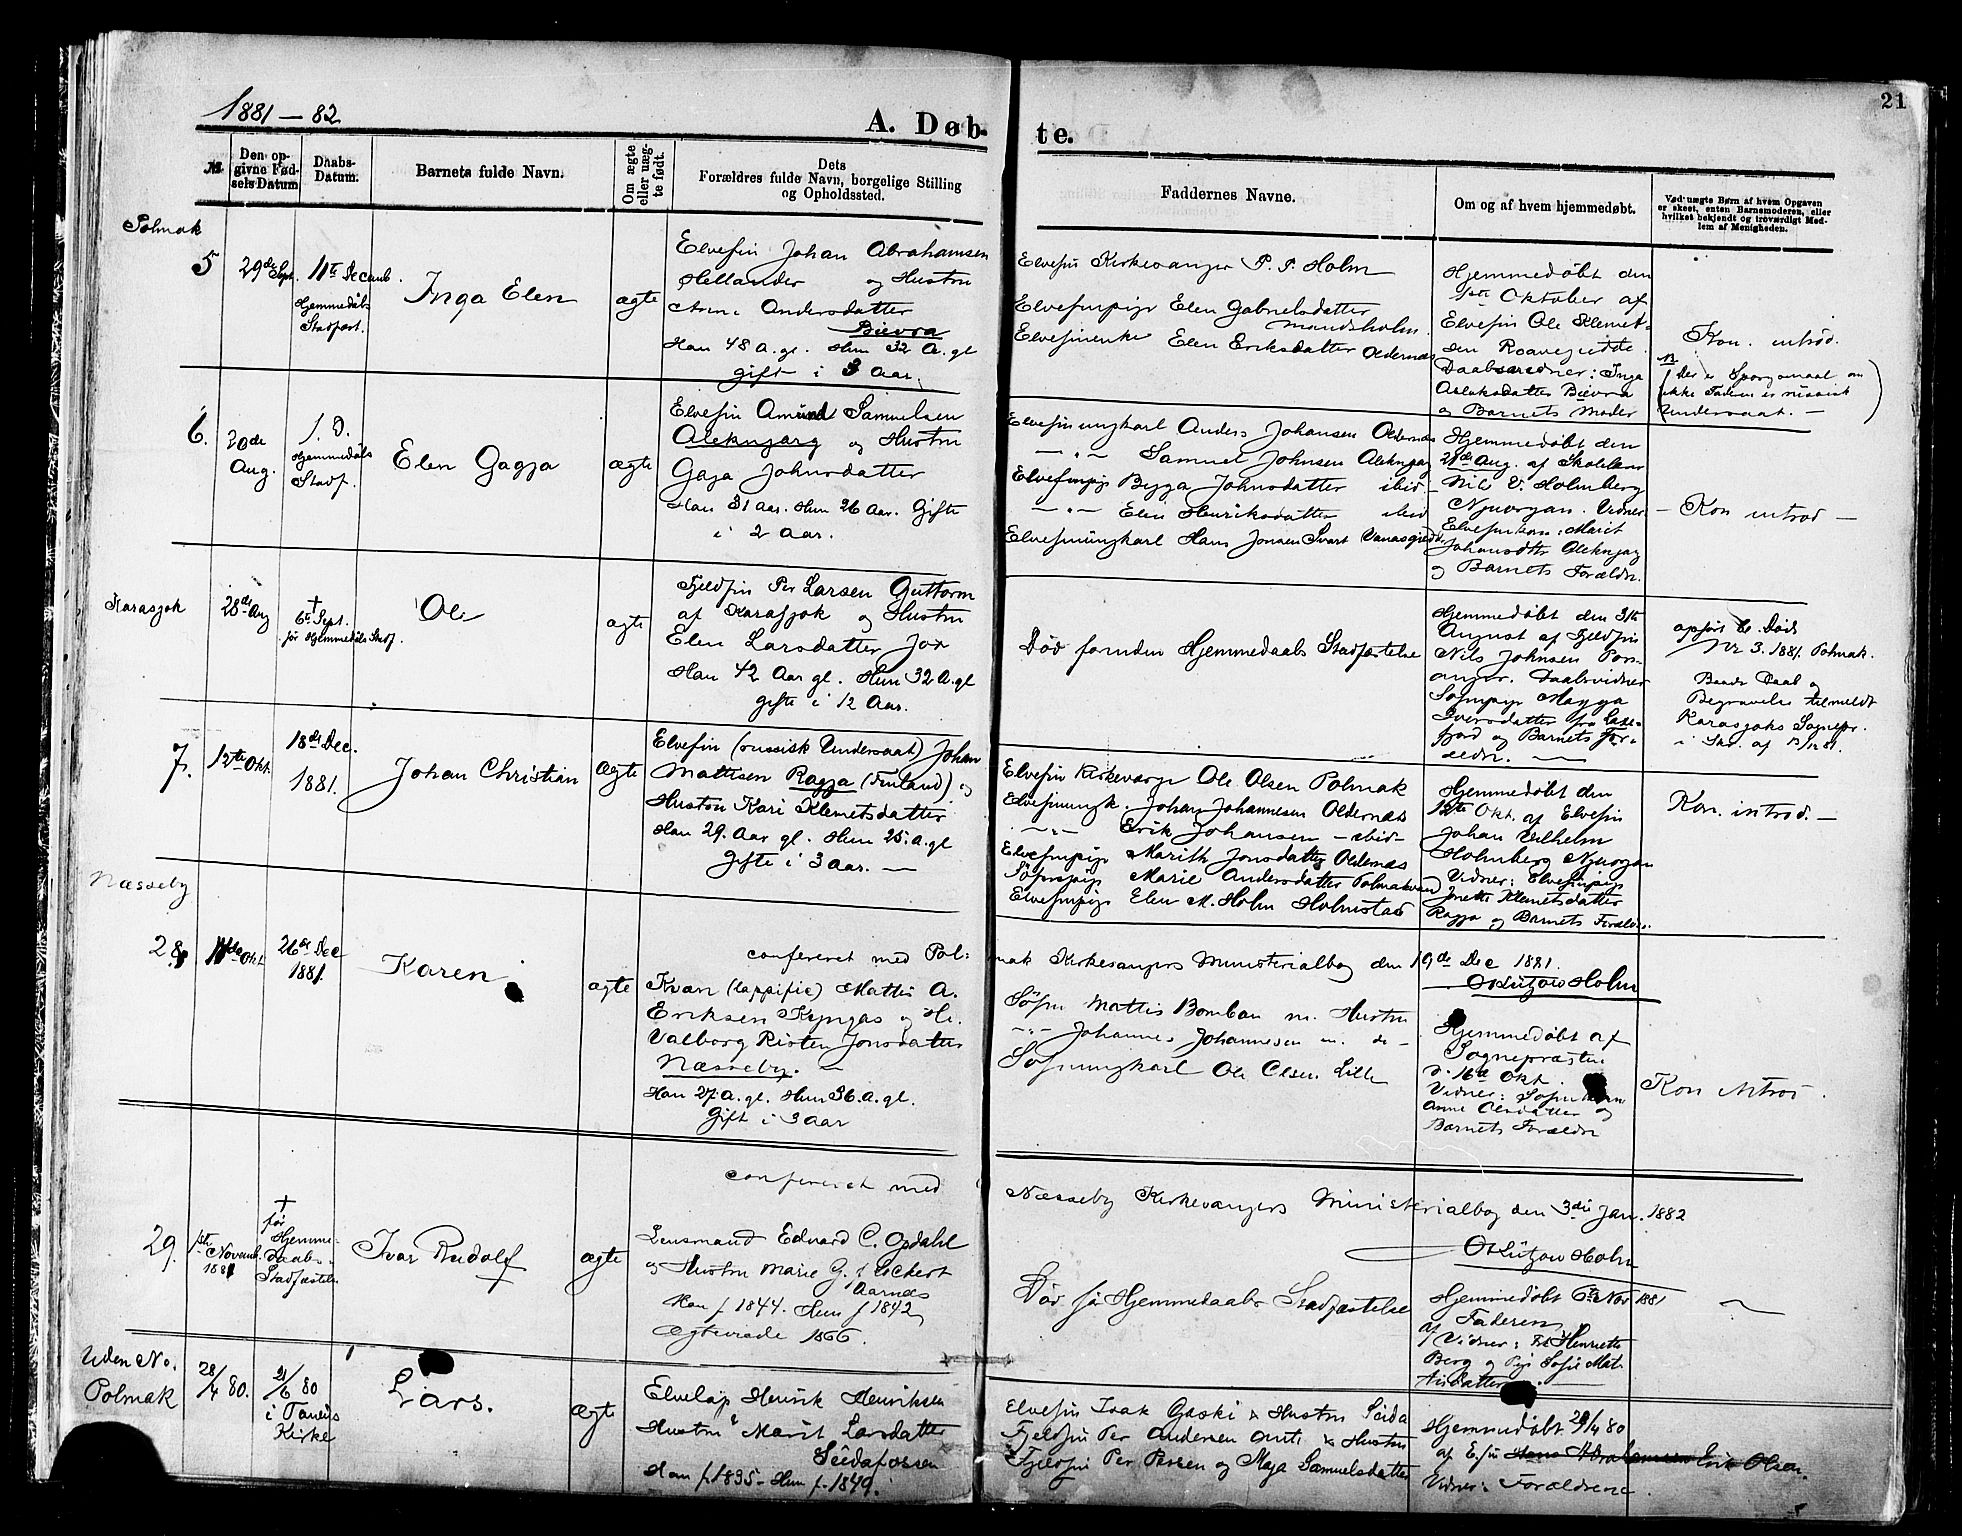 1881-82
A. Døb-
te.
21
№
Den op-
givne Fød-
sels Datum
Daabs-
Datum.
Barnets fulde Navn.
Om ægte
eller uæg-
te født.
Dets
Forældres fulde Navn, borgelige Stilling
og Opholdssted.
Faddernes Navne.
Om og af hvem hjemmedøbt.
Ved uægte Børn af hvem Opgaven
er skeet, enten Barnemoderen, eller
hvilket bekjendt og troværdigt Med-
lem af Menigheden.
Polmak
5
29de Sept.
11te Decemb.
Hjemmedåb
Stadfæst.
Inga Elen
ægte
Elvefin Johan Abrahamsen
Hellander og Hustru
Andersdatter
Bievra
Han 48 A. gl. Hun 32 A. gl
gift i 3 Aar.
Elvefin Kirkesanger P. P. Holm
Elvefinpige Elen Gabrielsdatter
Mandsholm
Elvefinenke Elen Eriksdatter Oldernæs
Hjemmedøbt den
1ste Oktober af
Elvefin Ole Klemet-
sen Roavegiedde
Daabsvidner: Inga
Aslaksdatter Bievra
og Barnets Moder
Kon. introd.
NB
(Der er Spørgsmaal om
ikke Faderen er russisk
Undersaat. -)
6.
20de
Aug.
1. D.
Hjemmedåb
Stadf.
Elen Gagja
ægte
Elvefin Amund Samuelsen
Aleknjarg og Hustru
Gaja Johnsdatter
Han 31 Aar. Hun 26 Aar. Gifte
i 2 Aar.
Elvefinungkarl Anders Johansen Oldernæs
— " — Samuel Johnsen Aleknjag
Elvefinpige Bigga Johnsdatter ibid
— " — Elen Henriksdatter ibid
Elvefinungkarl Hans Jonsen Svart
Hjemmedøbt den
28de Aug. af Skolelærer
Nil V. Holmberg
Njuorgan. Vidner
Elvefinkone: Marit
Johansdtr Aleknjag
og Barnets Forældre.
- Kon introd -
Karasjok
28de Aug
†
6te Sept.
før Hjemmedåbs Stadf.
Ole
ægte
Fjeldfin Per Larsen Guttorm
af Karasjok og Hustru
Elen Larsdatter Jox
Han 42 Aar gl. Hun 32 A. gl
gifte i 12 Aar.
Død forinden Hjemmedaabs Stadfæstelse
Hjemmedøbt den 31te
August af Fjeldfin
Nils Johnsen Pors-
anger. Daabsvidner
Søfinpige Magga
Iversdatter fra Laxe-
fjord og Barnets For-
ældre. —
opført C. Døde
Nr 3. 1881. Polmak.
Baade Daab og
Begravelse tilmeldt
Karasjoks Sognepr.
i Skr. af
7.
12te Okt.
18de Dec.
1881.
Johan Christian
ægte
Elvefin (russisk Undersaat) Johan
Mathisen Ragja (Finland) og
Hustru Kari Klemetsdatter
Han 29. Aar gl. Hun 25. A. gl
Gifte i 3 Aar. —
Elvefin Kirkeværge Ole Olsen Polmak
Elvefinungk. Johan Johannesen Oldernæs
— " — Erik Johansen - ibid -
Elvefinpige Marith Jonsdatter Oldernæs
Søfinpige Marie Andersdatter Polmakvand
Elvefinpige Elen M. Holm Holmstad
Hjemmedøbt den
12te Okt. af Elvefin
Johan Vilhelm
Holmberg Njuorgan
Vidner: Elvefinpige
Klemetsdatter
Ragja og Barnets Forældre.
Kon. introd. -
Næsseby
confereret med Pol-
mak Kirkesangers Ministerialbog den 19de Dec 1881.
O. Lützow Holm
28
11de Okt
26de Dec
1881.
Karen
ægte
Kvæn (lappific) Mattis A.
Eriksen Kyngäs og H.
Valborg Risten Jonsdatter
Næsseby. —
Han 27. A. gl. Hun 36. A. gl.
Gift i 3 Aar
Søfin Mattis Bomban m. Hustru
— " — Johannes Johannesen m. do -
Søfinungkarl Ole Olsen Lille
Hjemmedøbt af
Sognepræsten
d. 16de Okt.
Vidner: Søfinkone
Anne Olsdatter og
Barnets Forældre
Kon introd.
confereret med
Næsseby Kirkesangers Ministerialbog den 3die Jan. 1882
O. Lützow Holm
29.
1ste
Novemb.
1881
†
før
Hjemme-
daabs-
Stadfæstels.
Ivar Rudolf
ægte
Lensmand Edvard C. Opdahl
og Hustru Marie G. f. Eckert
Aarnæs
Han f 1844. Hun f 1842
Ægteviede 1866
Død før Hjemmedaabs Stadfæstelse
Hjemmedøbt 6te Nov 1881
af Faderen
Vidner: Henriette
Berg og Pige Sofie Mat-
hisdatter.
Uden No.
Polmak
28/4 80.
21/6 80
i Tanens
Kirke
Lars.
ægte
Elvelap Henrik Henriksen
Hustru Marit Larsdatter
Seidafossen
Han f. 1835 - Hun f. 1849.
Elvefin Isak Gaski & Hustru Seida
Fjeldfin Per Andersen Anti & Hustru
Fjeldfin Per Persen og Maja Samuelsdatter
Hjemmedøbt 29/4 80
af E.fin Hans Abrahamsen Erik Olsen.
Vidner: Forældrene.